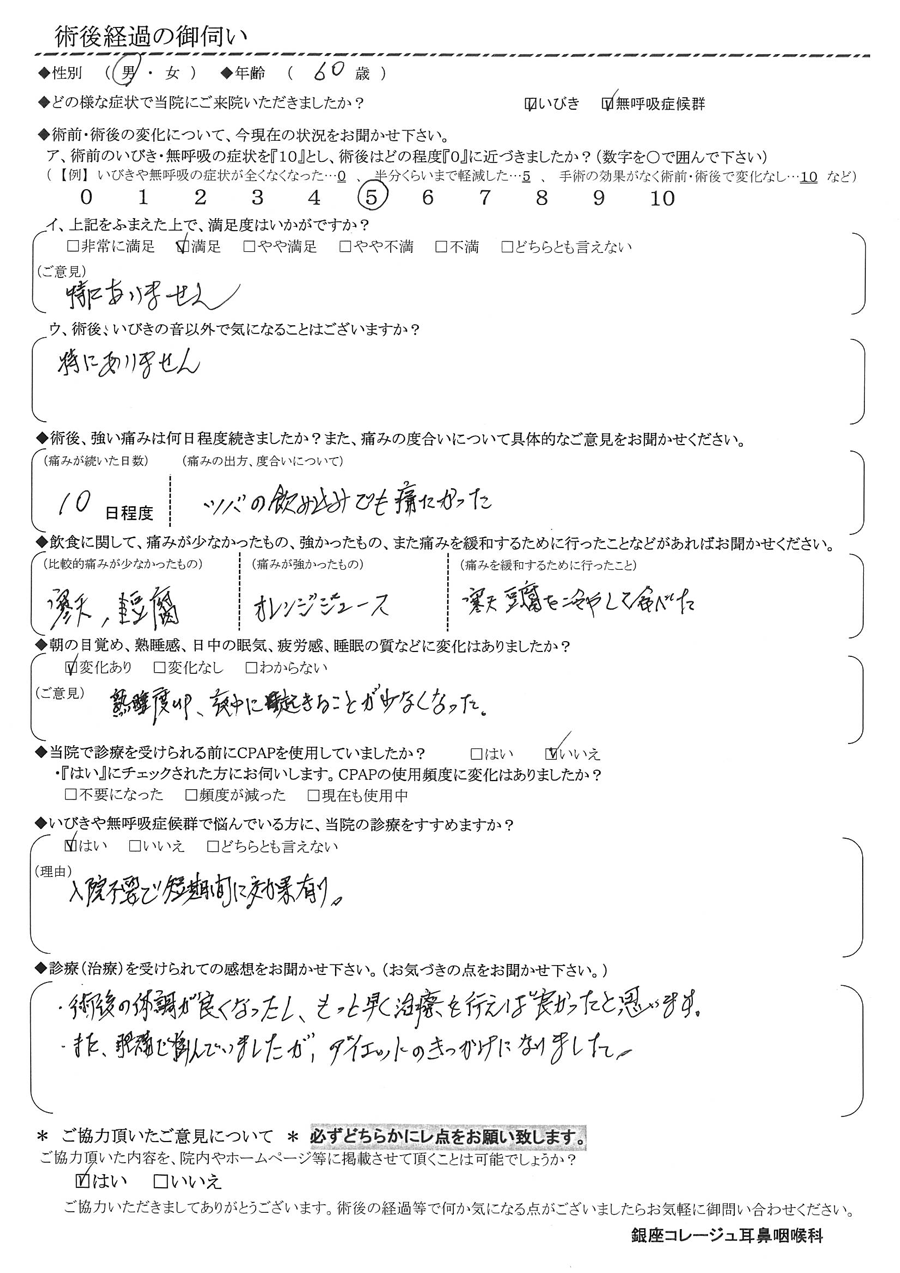 術後経過の御伺い
◆性別 ( 男 ・ 女 ) ◆年齢 ( 60 歳 )
◆どの様な症状で当院にご来院いただきましたか? ☑いびき ☑無呼吸症候群
◆術前・術後の変化について、今現在の状況をお聞かせ下さい。
ア、術前のいびき・無呼吸の症状を『10』とし、術後はどの程度『0』に近づきましたか?(数字を○で囲んで下さい)
(【例】いびきや無呼吸の症状が全くなくなった…0 、 半分くらいまで軽減した…5 、 手術の効果がなく術前・術後で変化なし…10 など)
0 1 2 3 4 5 6 7 8 9 10
イ、上記をふまえた上で、満足度はいかがですか?
□非常に満足 ☑満足 □やや満足 □やや不満 □不満 □どちらとも言えない
(ご意見)
特にありません
ウ、術後、いびきの音以外で気になることはございますか?
特にありません
◆術後、強い痛みは何日程度続きましたか?また、痛みの度合いについて具体的なご意見をお聞かせください。
(痛みが続いた日数) (痛みの出方、度合いについて)
10 日程度 ツバの飲み込みでも痛たかった
◆飲食に関して、痛みが少なかったもの、強かったもの、また痛みを緩和するために行ったことなどがあればお聞かせください。
(比較的痛みが少なかったもの) (痛みが強かったもの) (痛みを緩和するために行ったこと)
寒天, 豆腐 オレンジジュース 寒天豆腐を冷やして食べた
◆朝の目覚め、熟睡感、日中の眠気、疲労感、睡眠の質などに変化はありましたか?
☑変化あり □変化なし □わからない
(ご意見)
熟睡度UP、夜中に起きることが少なくなった。
◆当院で診療を受けられる前にCPAPを使用していましたか? □はい ☑いいえ
・『はい』にチェックされた方にお伺いします。CPAPの使用頻度に変化はありましたか?
□不要になった □頻度が減った □現在も使用中
◆いびきや無呼吸症候群で悩んでいる方に、当院の診療をすすめますか?
☑はい □いいえ □どちらとも言えない
(理由)
入院不要で短期間に効果有り。
◆診療(治療)を受けられての感想をお聞かせ下さい。(お気づきの点をお聞かせ下さい。)
・術後の体調が良くなったし、もっと早く治療を行えば良かったと思います。
・また、で悩んでいましたが、ダイエットのきっかけになりました。
* ご協力頂いたご意見について * 必ずどちらかにレ点をお願い致します。
ご協力頂いた内容を、院内やホームページ等に掲載させて頂くことは可能でしょうか?
☑はい □いいえ
ご協力いただきましてありがとうございます。術後の経過等で何か気になる点がございましたらお気軽に御問い合わせください。
銀座コレージュ耳鼻咽喉科